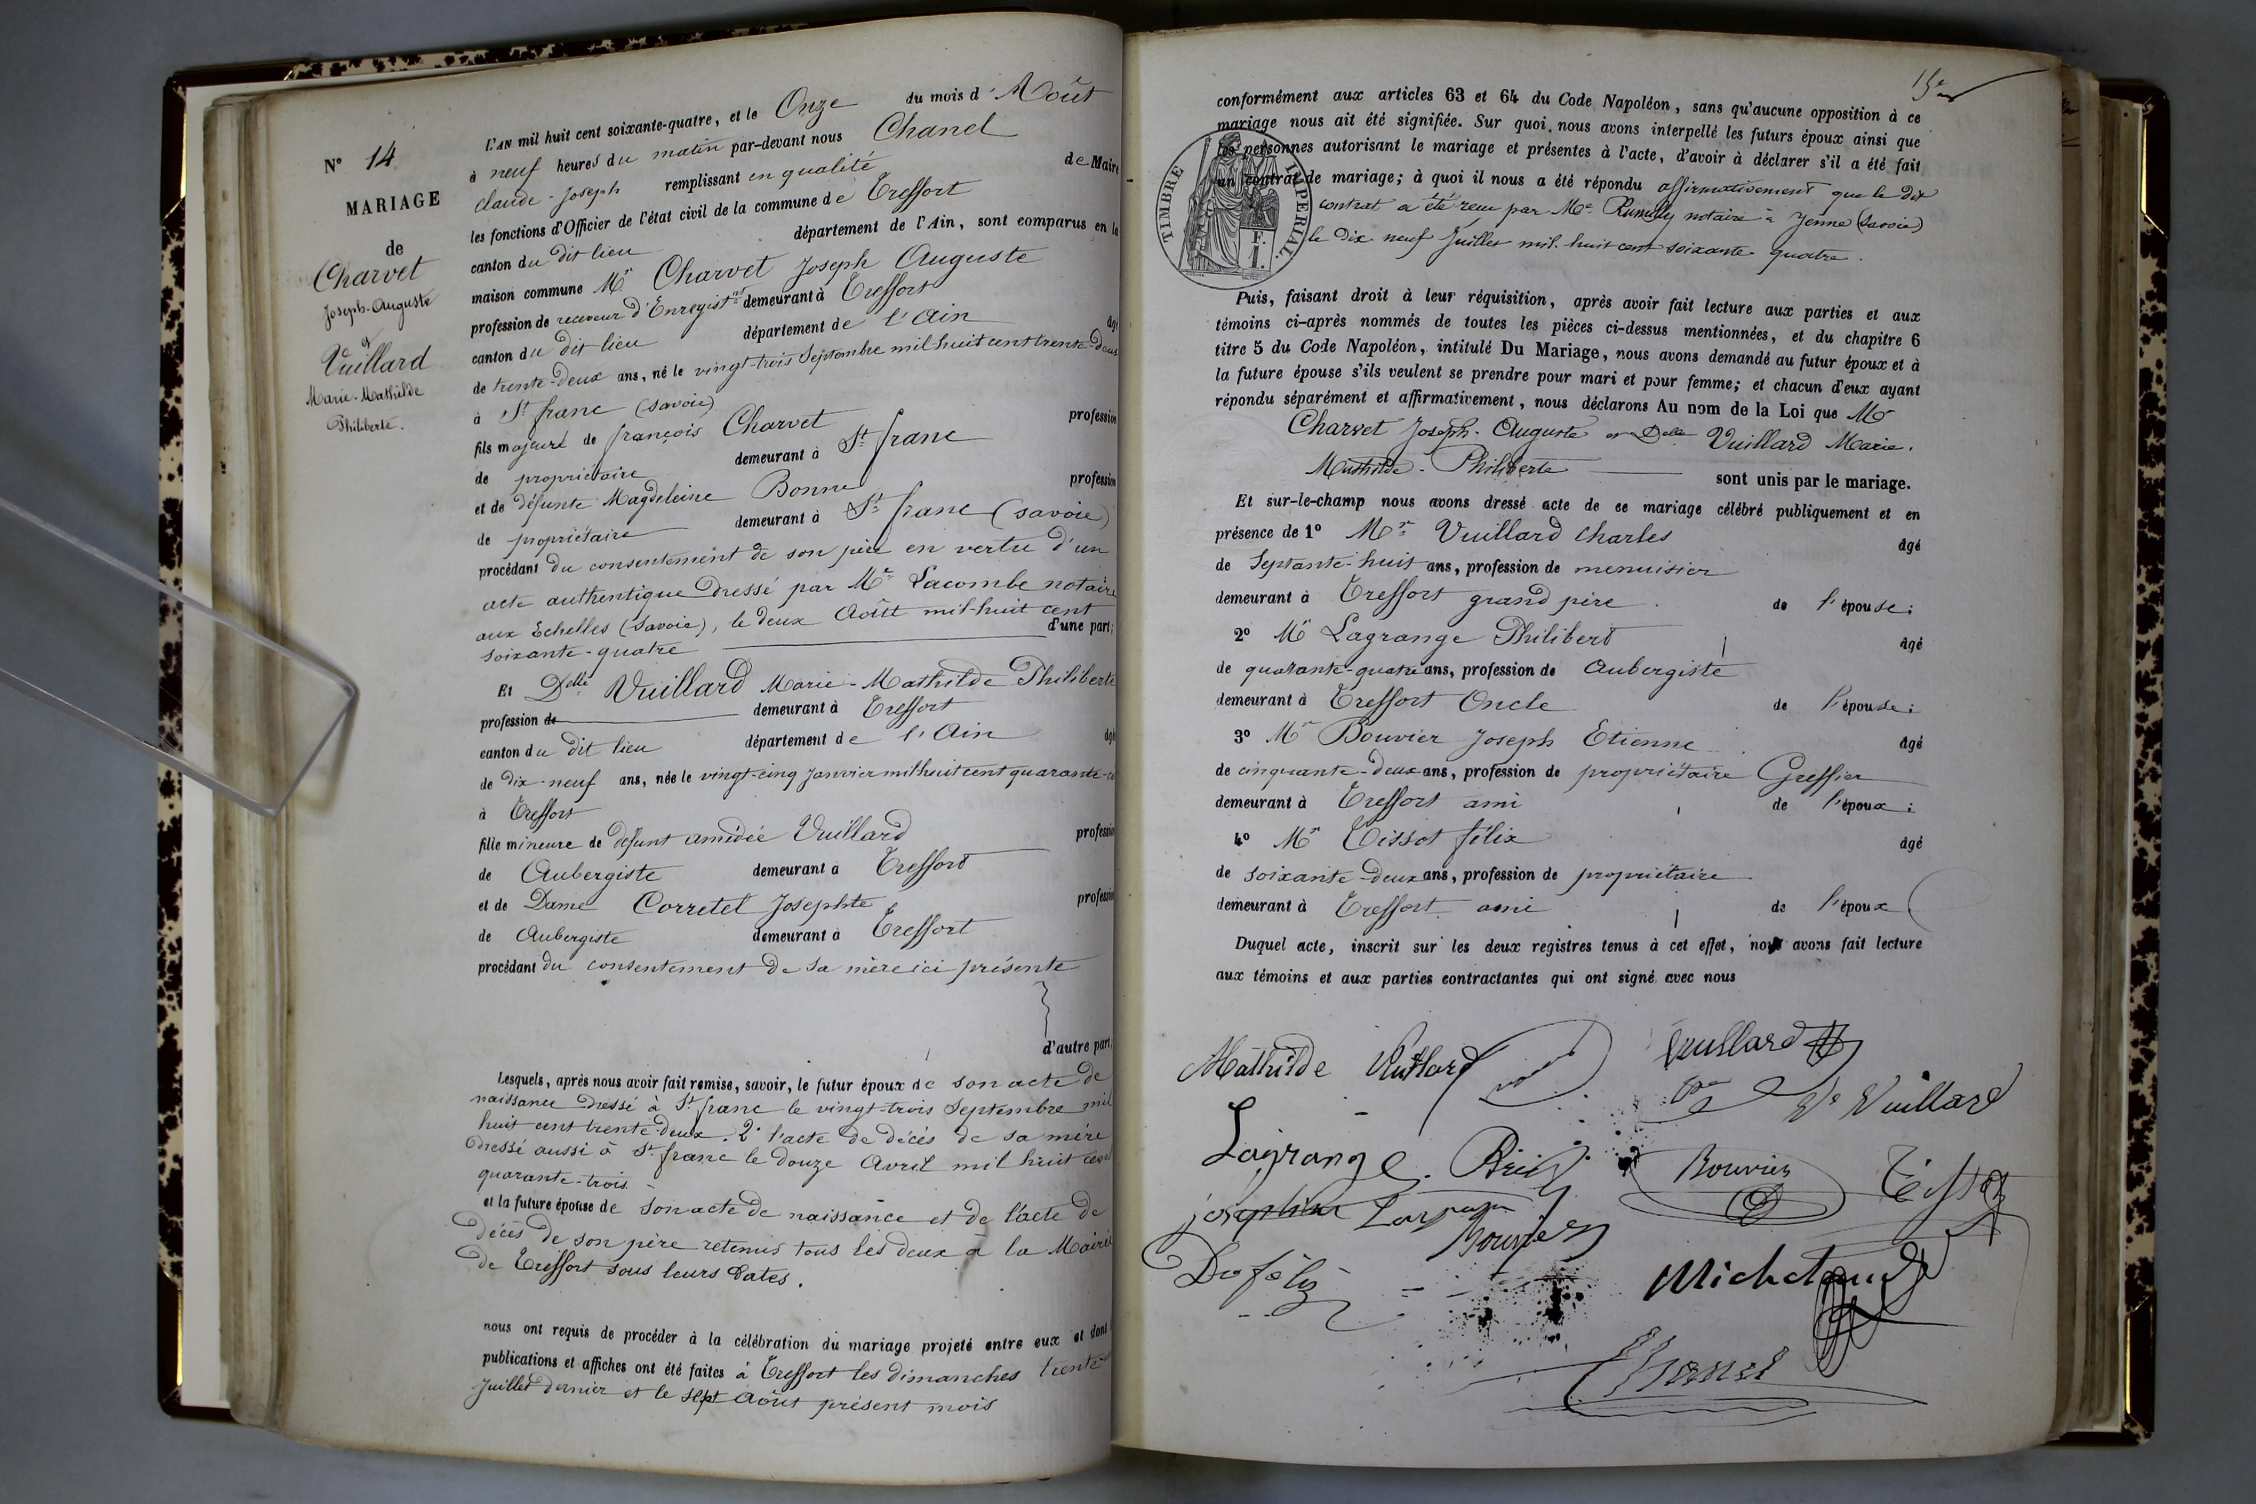 N° 14
MARIAGE
de
Charvet
Joseph-Auguste
et
Vuillard
Marie-Mathilde
Philiberte.
L'AN mil huit cent soixante-quatre, et le Onze du mois d'Août
à neuf heures du matin par-devant nous Chanel
claude-Joseph remplissant en qualité de Maire
les fonctions d'Officier de l'état civil de la commune de Treffort
canton du dit lieu département de l'Ain, sont comparus en la
maison commune Mr Charvet Joseph Auguste
profession de receveur d'Enregistnt demeurant à Treffort
canton du dit lieu département de l'Ain âgé
de trente-deux ans, né le vingt-trois Septembre mil huit cent trente-deux
à St franc (Savoie)
fils majeur de françois Charvet profession
de propriétaire demeurant à St franc
et de défunte Magdeleine Bonne profession
de propriétaire demeurant à St franc (Savoie)
procédant du consentement de son père en vertu d'un
acte authentique dressé par Me Lacombe notaire
aux Echelles (Savoie), le deux Août mil-huit cent
soixante-quatre d'une part;
Et Delle Vuillard Marie-Mathilde Philiberte
profession de demeurant à Treffort
canton du dit lieu département de l'Ain âgé
de dix-neuf ans, née le vingt-cinq Janvier mil huit cent quarante-
à Treffort
fille mineure de défunt amédée Vuillard profession
de Aubergiste demeurant à Treffort
et de Dame Corretel Josephte profession
de Aubergiste demeurant à Treffort
procédant du consentement de sa mère ici présente
d'autre part;
Lesquels, après nous avoir fait remise, savoir, le futur époux de son acte de
naissance dressé à St franc le vingt-trois Septembre mil
huit cent trente-deux. 2° l'acte de décès de sa mère
dressé aussi à St franc le douze Avril mil huit cent
quarante-trois.
et la future épouse de son acte de naissance et de l'acte de
décès de son père retenus tous les deux à la Mairie
de Treffort sous leurs dates.
nous ont requis de procéder à la célébration du mariage projeté entre eux et dont
publications et affiches ont été faites à Treffort les dimanches trente
Juillet dernier et le sept Août présent mois
conformément aux articles 63 et 64 du Code Napoléon, sans qu'aucune opposition à ce
mariage nous ait été signifiée. Sur quoi, nous avons interpellé les futurs époux ainsi que
les personnes autorisant le mariage et présentes à l'acte, d'avoir à déclarer s'il a été fait
un contrat de mariage; à quoi il nous a été répondu affirmativement que le dit
contrat a été reçu par Me Rumilly notaire à Yenne (Savoie)
le dix neuf Juillet mil-huit cent soixante quatre.
TIMBRE IMPERIAL.
F.
1.
Puis, faisant droit à leur réquisition, après avoir fait lecture aux parties et aux
témoins ci-après nommés de toutes les pièces ci-dessus mentionnées, et du chapitre 6
titre 5 du Code Napoléon, intitulé Du Mariage, nous avons demandé au futur époux et à
la future épouse s'ils veulent se prendre pour mari et pour femme; et chacun d'eux ayant
répondu séparément et affirmativement, nous déclarons Au nom de la Loi que Mr
Charvet Joseph-Auguste et Delle Vuillard Marie.
Mathilde-Philiberte sont unis par le mariage.
Et sur-le-champ nous avons dressé acte de ce mariage célébré publiquement et en
présence de 1° Mr Vuillard Charles âgé
de Septante-huit ans, profession de menuisier
demeurant à Treffort grand père de l'épouse;
2° Mr Lagrange Philibert âgé
de quarante-quatre ans, profession de Aubergiste
demeurant à Treffort Oncle de l'épouse;
3° Mr Bouvier Joseph Etienne âgé
de cinquante-deux ans, profession de propriétaire Greffier
demeurant à Treffort ami de l'époux;
4° Mr Tissot félix âgé
de soixante-deux ans, profession de propriétaire
demeurant à Treffort ami de l'époux
Duquel acte, inscrit sur les deux registres tenus à cet effet, nous avons fait lecture
aux témoins et aux parties contractantes qui ont signé avec nous
Mathilde Vuillard Vuillard
Ve Vuillard
Lagrange Bouvier Tissot
Bouvier
Michelaud
Chanel